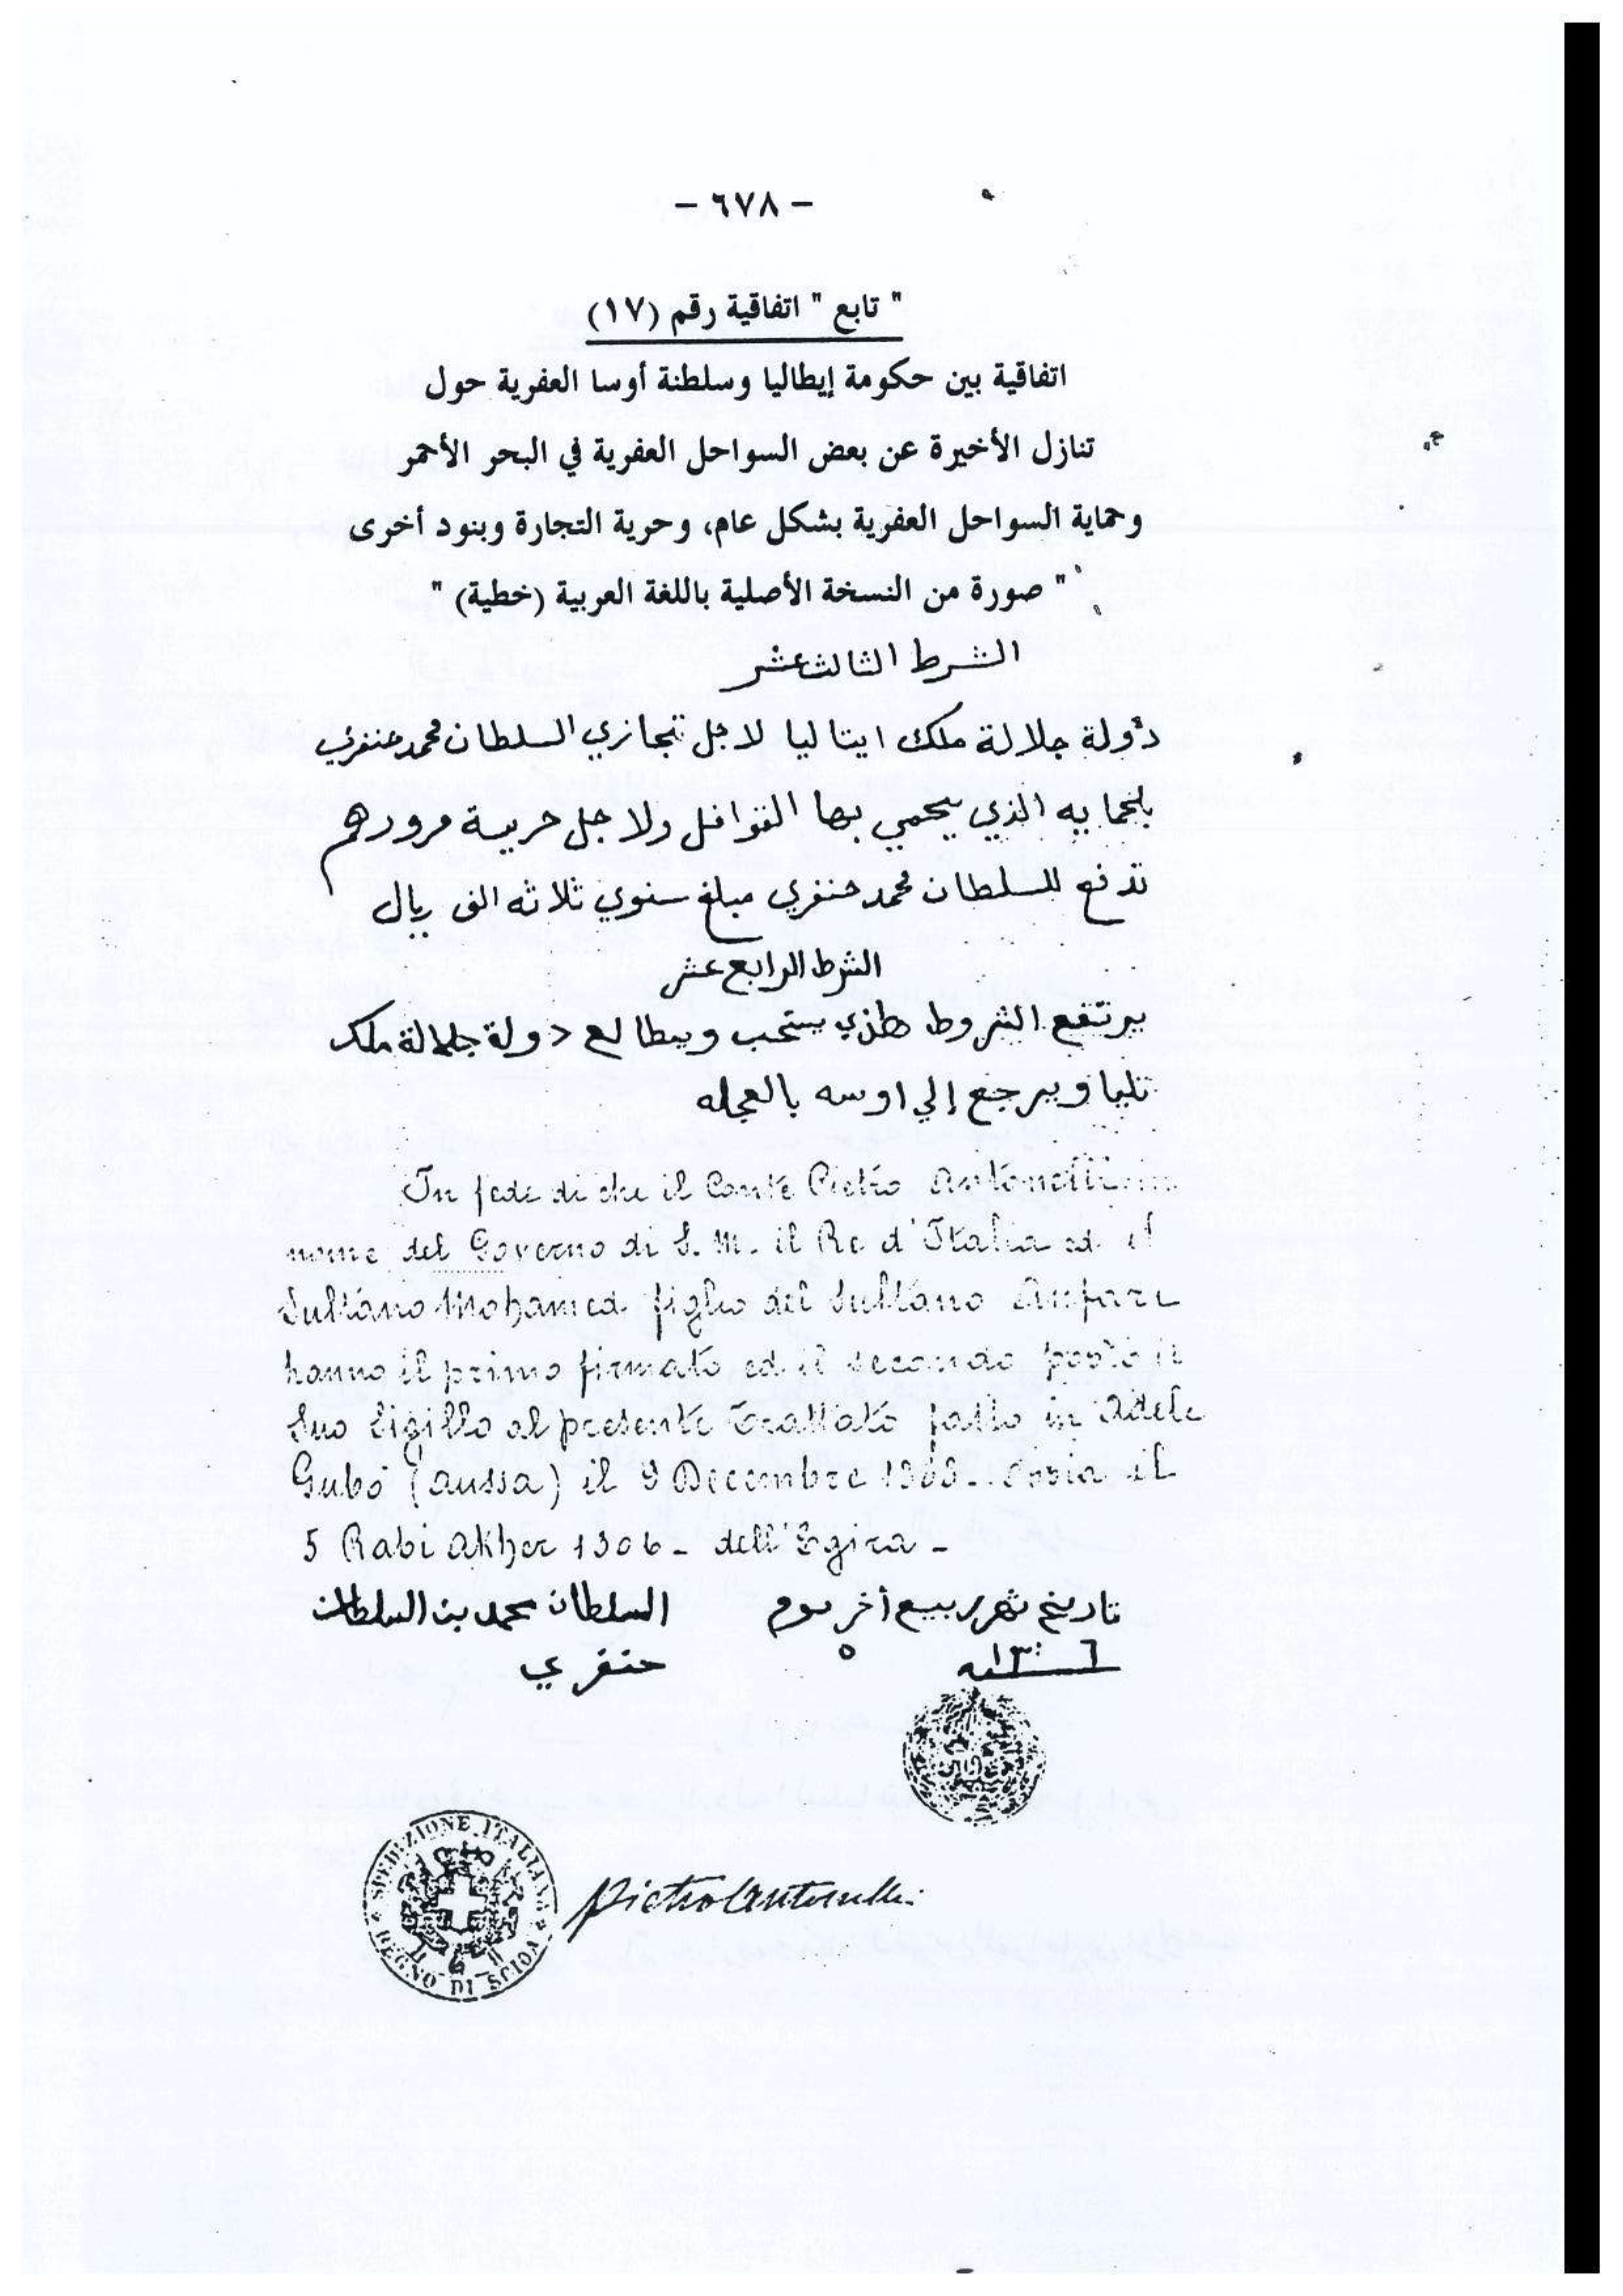 - ٦٧٨ -
" تابع " اتفاقية رقم (١٧)
اتفاقية بين حكومة إيطاليا وسلطنة أوسا العفرية حول
تنازل الأخيرة عن بعض السواحل العفرية في البحر الأحمر
وحماية السواحل العفرية بشكل عام، وحرية التجارة وبنود أخرى
" صورة من النسخة الأصلية باللغة العربية (خطية) "
الشرط الثالث عشر
دولة جلالة ملك ايتاليا لاجل تجازي السلطان محمد حنفري
بالحمايه الذي يحمي بها القوافل ولاجل حرية مرورهم
تدفع للسلطان محمد حنفري مبلغ سنوي ثلاثه الف ريال
الشرط الرابع عشر
يرتفع الشروط هذي يستحب ويطالع دولة جلالة ملك
تليا ويرجع إلي اوسه بالعجله
In fede di che il Conte Pietro Antonelli in
nome del Governo di S. M. il Re d'Italia ed il
Sultano Mohamed figlio del Sultano Anfari
hanno il primo firmato ed il secondo posto il
suo sigillo al presente trattato fatto in Adele
Gubò (Aussa) il 9 Decembre 1888 - ossia il
5 Rabi Akher 1306 - dell'Egira -
تاريخ شهر ربيع أخر يوم السلطان محمد بن السلطان
٥ ١٣٠٦ حنفري
SPEDIZIONE ITALIANA
REGNO DI SCIOA
Pietro Antonelli